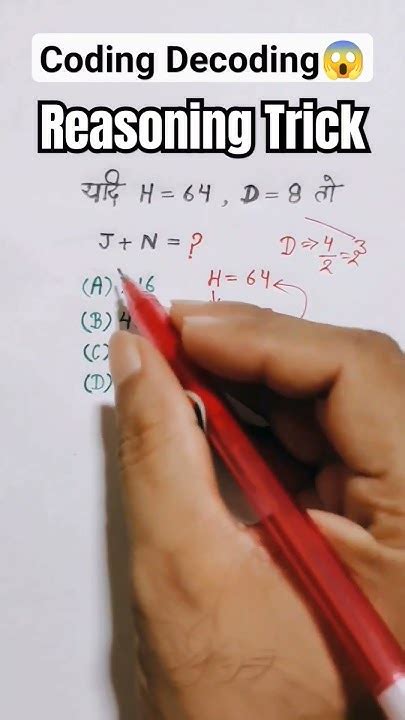 Coding Decoding😱
Reasoning Trick
यदि H = 64 , D = 8 तो
J + N = ?
D ⇒ 4/2 = 2³
(A)
H = 64
(B) 4
(C)
(D)